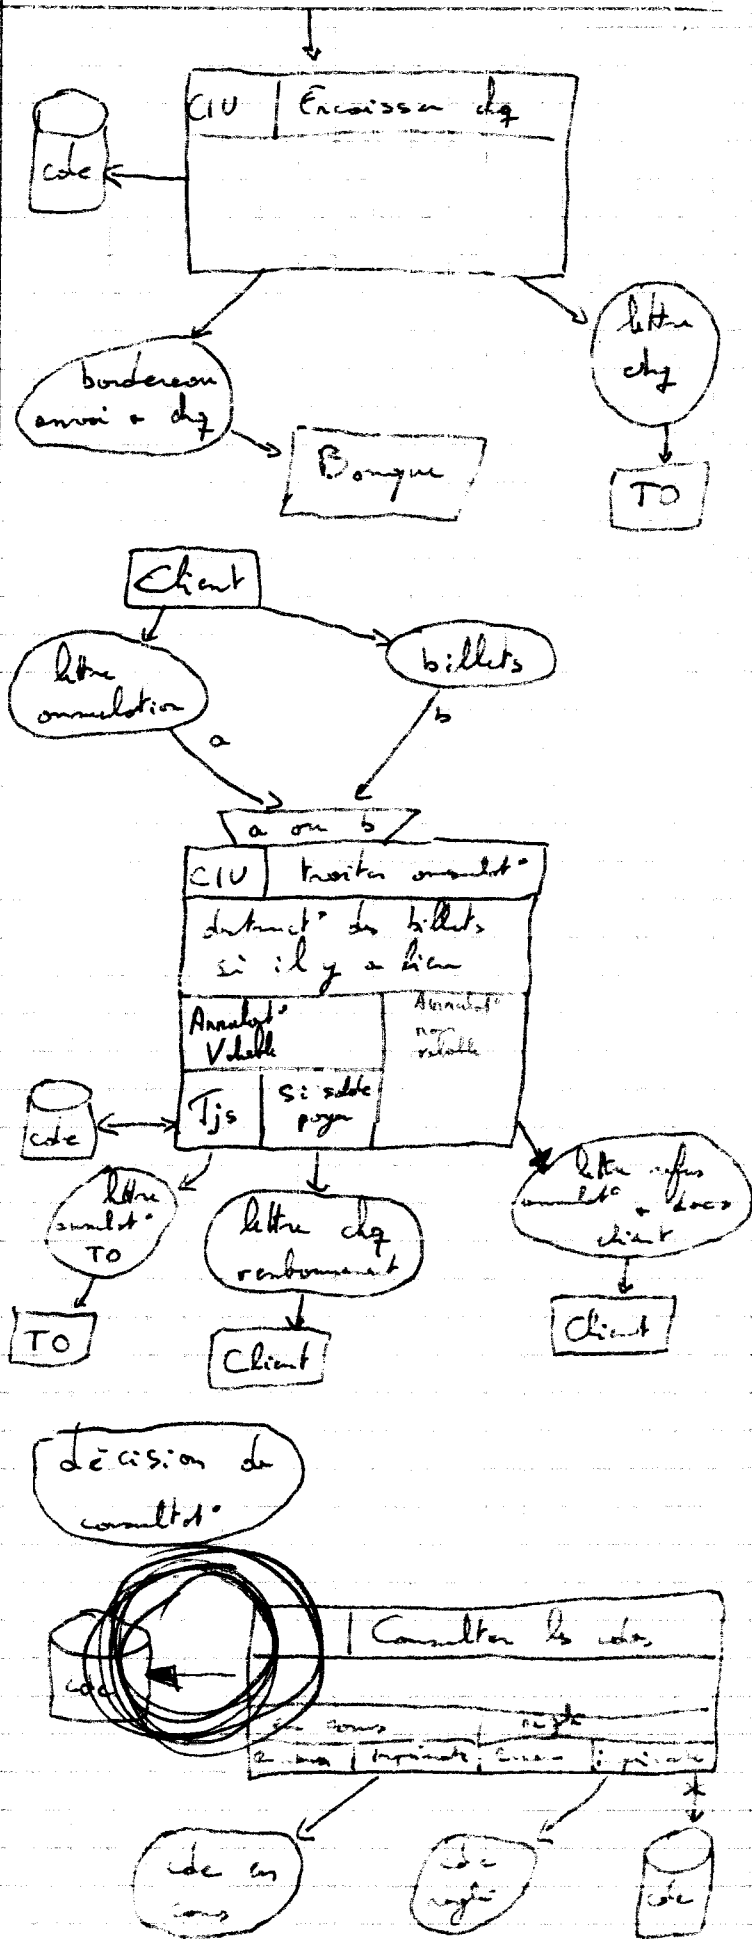 CIU Encaisser chq
cde
lettre
chq
bordereau
envoi + chq
Banque
TO
Client
lettre
annulation
billets
a
b
a ou b
CIU traiter annulat°
destruct° des billets
si il y a lieu
Annulat°
Valable
Annulat°
non
valable
Tjs
si solde
payé
cde
lettre
annulat°
TO
lettre chq
remboursement
lettre refus
annulat° + docs
client
TO
Client
Client
décision de
consultat°
Consulter les cdes
cde
en cours
réglée
écran imprimante écran imprimante
cde en
cours
cde
réglée
cde